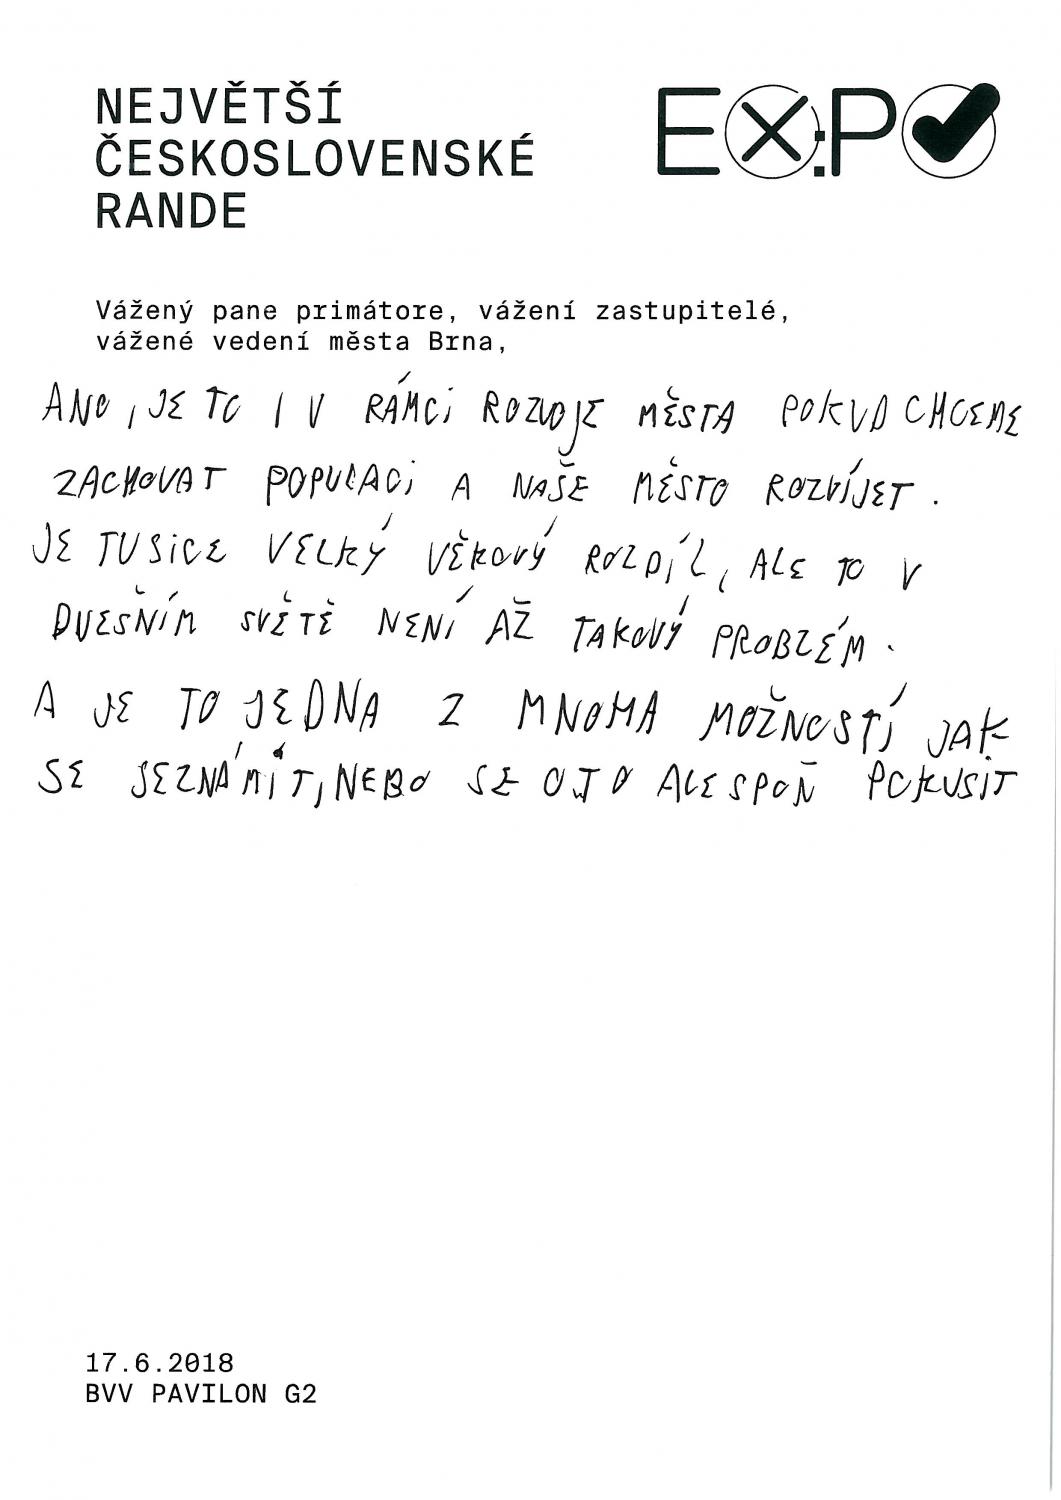 NEJVĚTŠÍ
ČESKOSLOVENSKÉ
RANDE
EX:PO
Vážený pane primátore, vážení zastupitelé,
vážené vedení města Brna,
ANO, JE TO I V RÁMCI ROZVOJE MĚSTA POKUD CHCEME
ZACHOVAT POPULACI A NAŠE MĚSTO ROZVÍJET.
JE TU SICE VELKÝ VĚKOVÝ ROZDÍL, ALE TO V
DNEŠNÍM SVĚTĚ NENÍ AŽ TAKOVÝ PROBLÉM.
A JE TO JEDNA Z MNOHA MOŽNOSTÍ JAK
SE SEZNÁMIT, NEBO SE O TO ALESPOŇ POKUSIT
17.6.2018
BVV PAVILON G2